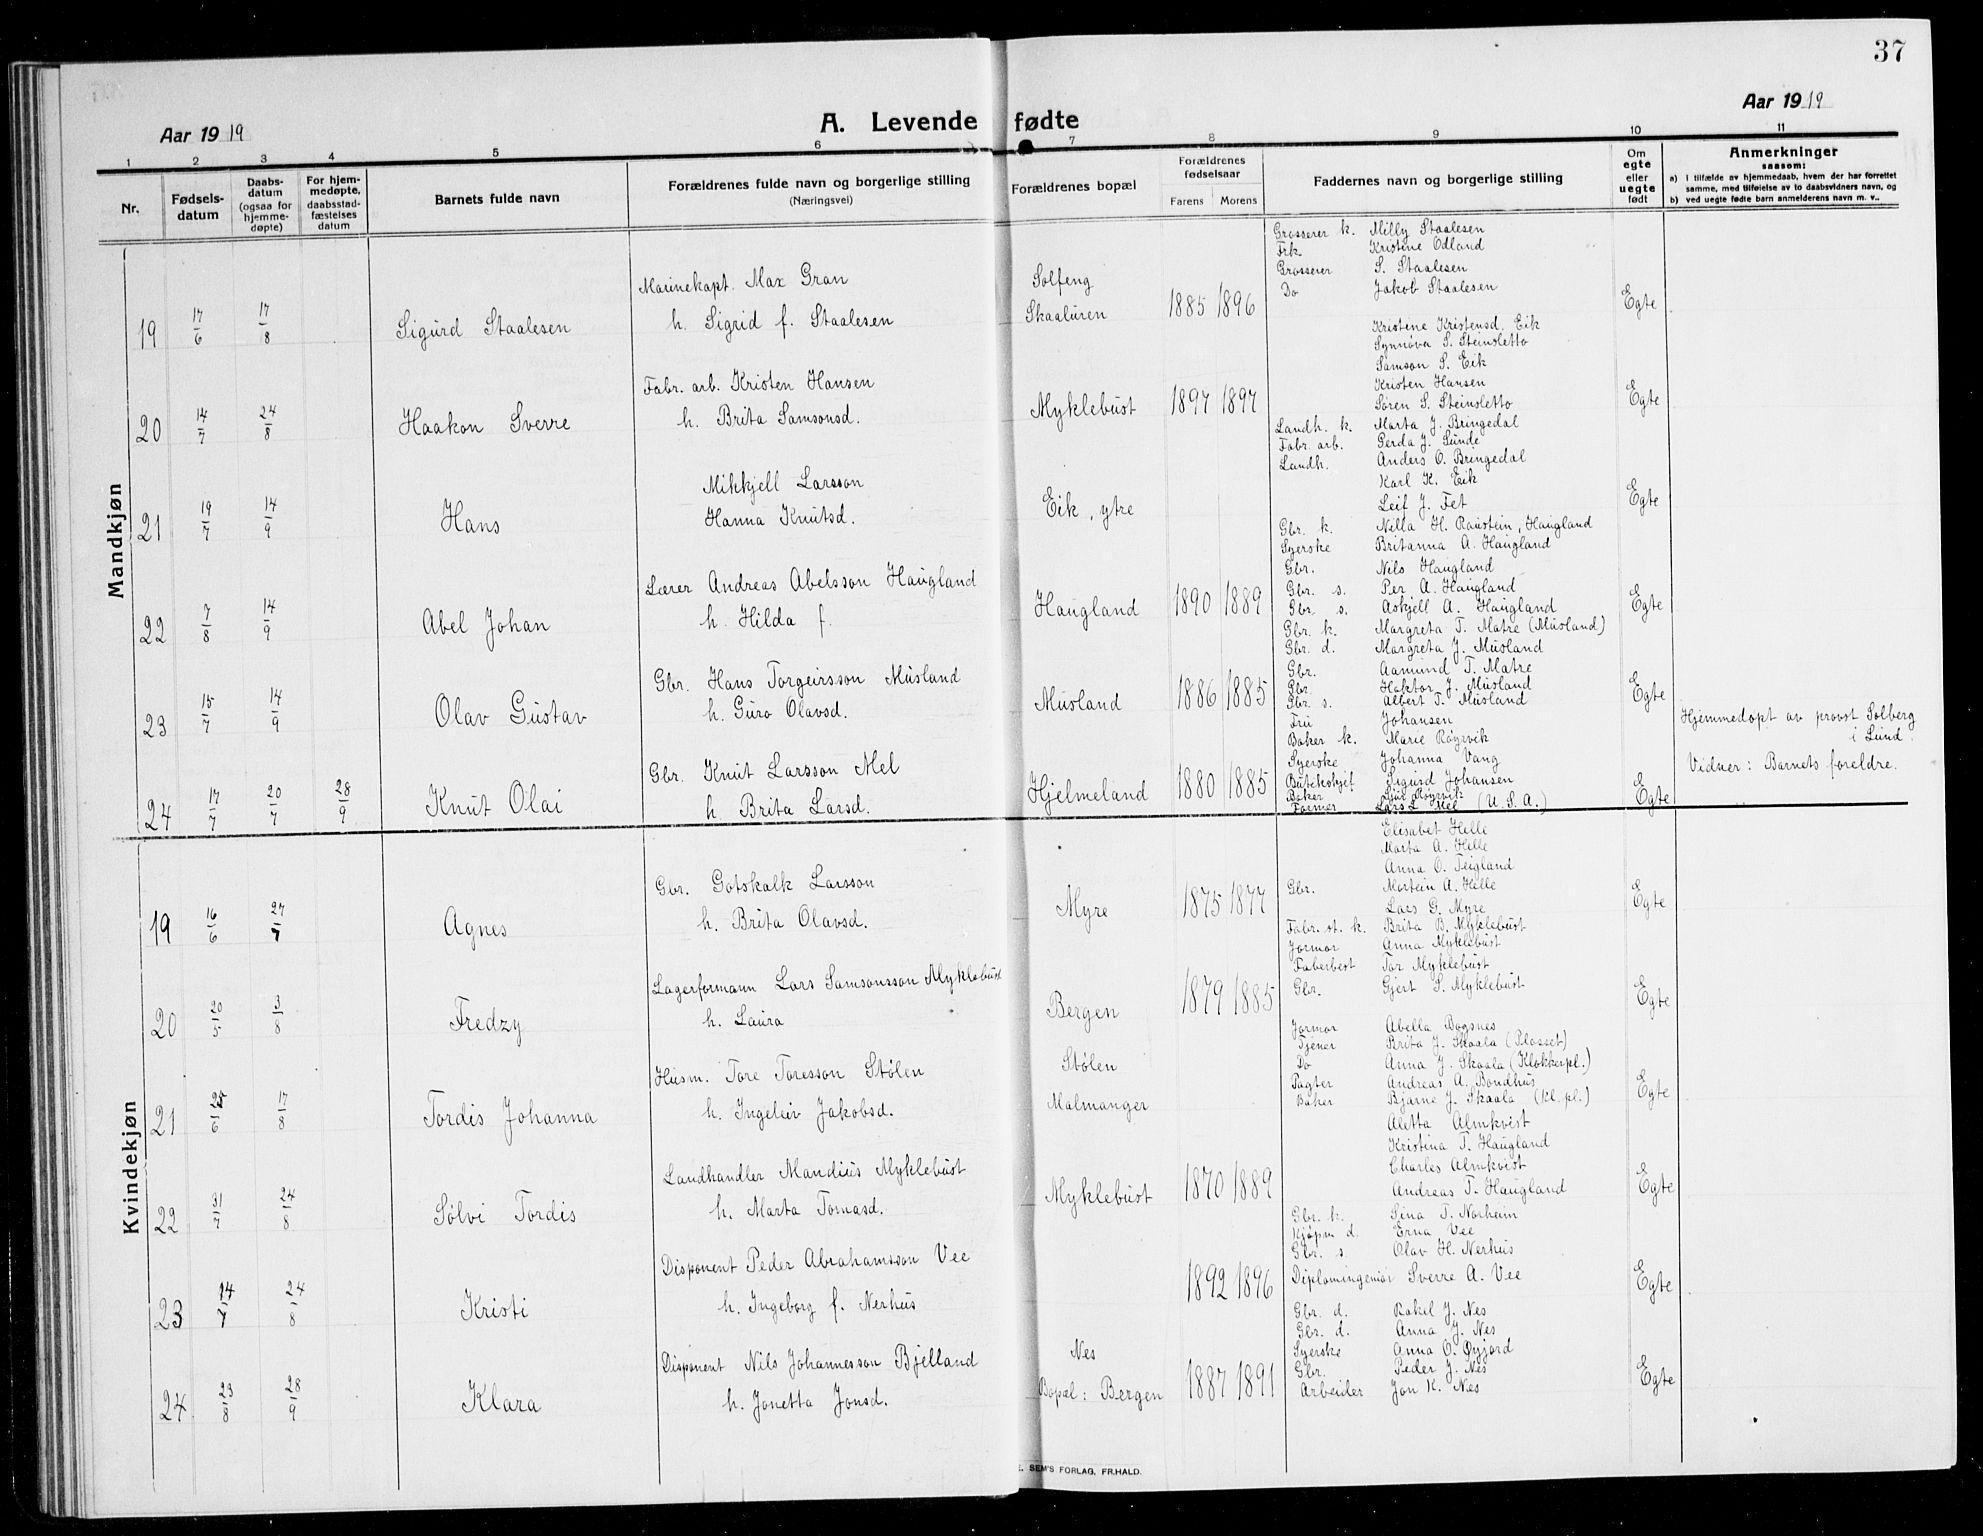 37
Aar 1919
A. Levende fødte
Aar 1919
1 2 3 4 5 6 7 8 9 10 11
Nr.
Fødselsdatum
Daabsdatum (ogsaa for hjemmedøpte)
For hjemmedøpte, daabsstadfæstelses datum
Barnets fulde navn
Forældrenes fulde navn og borgerlige stilling
(Næringsvei)
Forældrenes bopæl
Forældrenes fødselsaar
Farens Morens
Faddernes navn og borgerlige stilling
Om egte eller uegte født
Anmerkninger
saasom:
a) I tilfælde av hjemmedaab, hvem der har forrettet samme, med tilføielse av to daabsvidners navn, og
b) ved uegte fødte barn anmelderens navn m. v..
Mandkjøn
19 17/6 17/8 Sigurd Staalesen
Marinekapt. Max Gran
h. Sigrid f. Staalesen
Solfeng
Skaaluren
1885 1896
Grosserer k. Milly Staalesen
Frk. Kristine Odland
Grosserer S. Staalesen
Do Jakob Staalesen
Egte
20 14/7 24/8 Haakon Sverre
Fabr. arb. Kristen Hansen
h. Brita Samsonsd.
Myklebust
1897 1897
Kristine Kristensd. Eik
Synnøva S. Steinsletto
Samson S. Eik
Kristen Hansen
Søren S. Steinsletto
Egte
21 19/7 14/9 Hans
Mikkjell Larsson
Hanna Knutsd.
Eik, ytre
Landh. k. Marta J. Bringedal
Fabr. arb. Gerda J. Sunde
Landh. Anders O. Bringedal
Karl K. Eik
Leif J. Fet
Egte
22 7/8 14/9 Abel Johan
Lærer Andreas Abelsson Haugland
h. Hilda f.
Haugland
1890 1889
Gbr. k. Nilla H. Raustein, Haugland
Syerske Britanna A. Haugland
Gbr. Nils Haugland
Gbr. s. Per A. Haugland
Gbr. s. Askjell A. Haugland
Egte
23 15/7 14/9 Olav Gustav
Gbr. Hans Torgeirsson Musland
h. Guro Olavsd.
Musland
1886 1885
Gbr. k. Margreta T. Matre (Musland)
Gbr. d. Margreta J. Musland
Gbr. Aamund T. Matre
Gbr. Haktor J. Musland
Gbr. s. Albert T. Musland
Egte
24 17/7 20/7 28/9 Knut Olai
Gbr. Knut Larsson Mel
h. Brita Larsd.
Hjelmeland
1880 1885
Fru Johansen
Baker k. Marie Røyrvik
Syerske Johanna Vang
Butikskjef Sigurd Johansen
Baker Røyrvik
Farmer Lars L. Mel (U.S.A.)
Egte
Hjemmedøpt av provst Solberg
i Lund.
Vidner: Barnets foreldre.
Kvindekjøn
19 16/6 27/7 Agnes
Gbr. Gotskalk Larsson
h. Brita Olavsd.
Myre
1875 1877
Elisabet Helle
Marta A. Helle
Anna O. Teigland
Gbr. Mortein A. Helle
Lars G. Myre
Egte
20 20/5 3/8 Fredzy
Lagerformann Lars Samsonsson Myklebust
h. Laura
Bergen
1879 1885
Fabr. st. k. Brita B. Myklebust
Jormor Anna Myklebust
Faberbest Tor Myklebust
Gbr. Gjert S. Myklebust
Egte
21 24/6 17/8 Tordis Johanna
Husm. Tore Toresson Stølen
h. Ingeleiv Jakobsd.
Stølen
Malmanger
Jormor Abella Bogsnes
Tjener Brita J. Skaala (Plasset)
Do Anna J. Skaala (Klokkerpl.)
Pagter Andreas A. Bondhus
Baker Bjarne J. Skaala (Kl. pl.)
Egte
22 31/7 24/8 Sølvi Tordis
Landhandler Mandius Myklebust
h. Marta Tomasd.
Myklebust
1870 1889
Aletta Almkvist
Kristina T. Haugland
Charles Almkvist
Andreas T. Haugland
Egte
23 24/7 24/8 Kristi
Disponent Peder Abrahamsson Vee
h. Ingeborg f. Nerhus
1892 1896
Gbr. k. Sina T. Norheim
Kjøpm d. Erna Vee
Gbr. s. Olav H. Nerhus
Diplomingeniør Sverre A. Vee
Egte
24 23/8 28/9 Klara
Disponent Nils Johannesson Bjelland
h. Jonetta Jonsd.
Nes
Bopæl: Bergen
1887 1891
Gbr. d. Rakel J. Nes
Gbr. d. Anna J. Nes
Syerske Anna O. Øyjord
Gbr. Peder J. Nes
Arbeider Jon K. Nes
Egte
SEM'S FORLAG, FR.HALD.